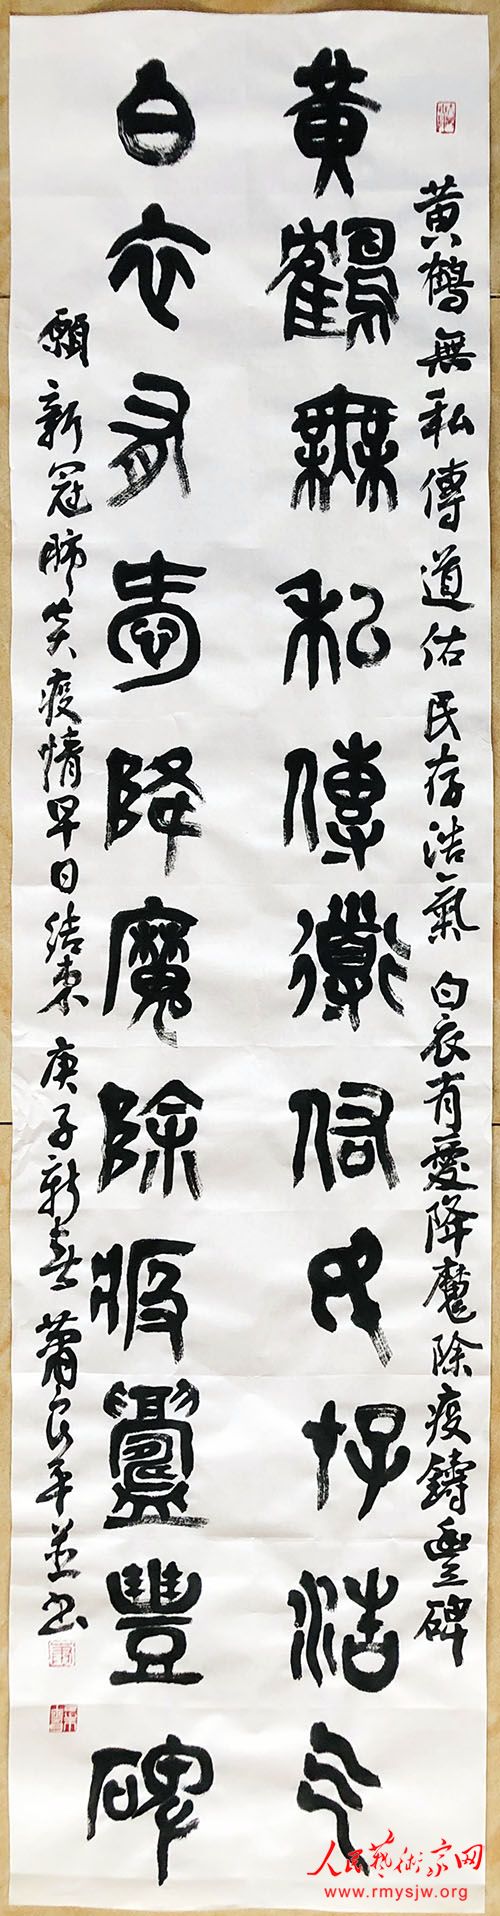 黃鶴無私傳道佑民存浩氣白衣有愛降魔除疫鑄豐碑
黃鶴無私傳道佑民存浩气
白衣有愛降魔除疫鑄豐碑
願新冠肺炎疫情早日结束庚子新春蕭良平並书
人民藝術家网
www.rmysjw.org